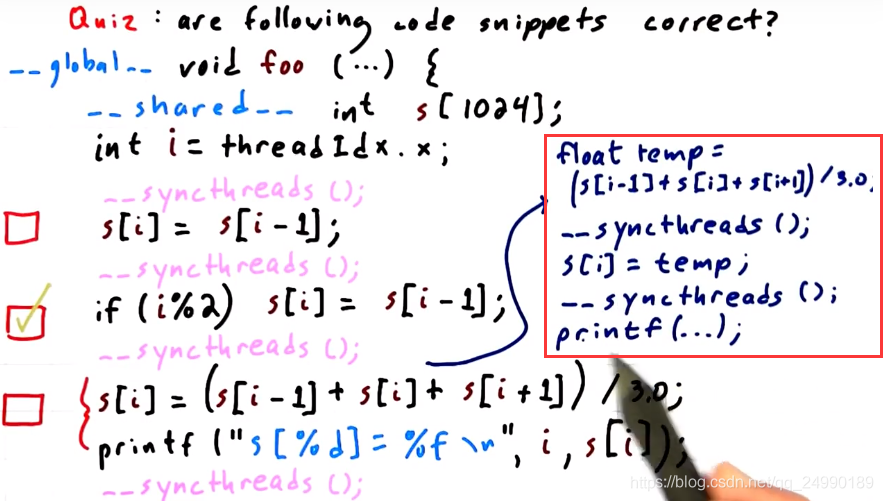 Quiz : are following code snippets correct?
__global__ void foo (...) {
__shared__ int s[1024];
int i = threadIdx.x;
__syncthreads ();
s[i] = s[i-1];
__syncthreads ();
if (i%2) s[i] = s[i-1];
__syncthreads ();
s[i] = (s[i-1] + s[i] + s[i+1]) / 3.0;
printf ("s[%d] = %f \n", i, s[i]);
__syncthreads ();
float temp =
(s[i-1]+s[i]+s[i+1]) / 3.0;
__syncthreads ();
s[i] = temp;
__syncthreads ();
printf (...);
https://blog.csdn.net/qq_24990189